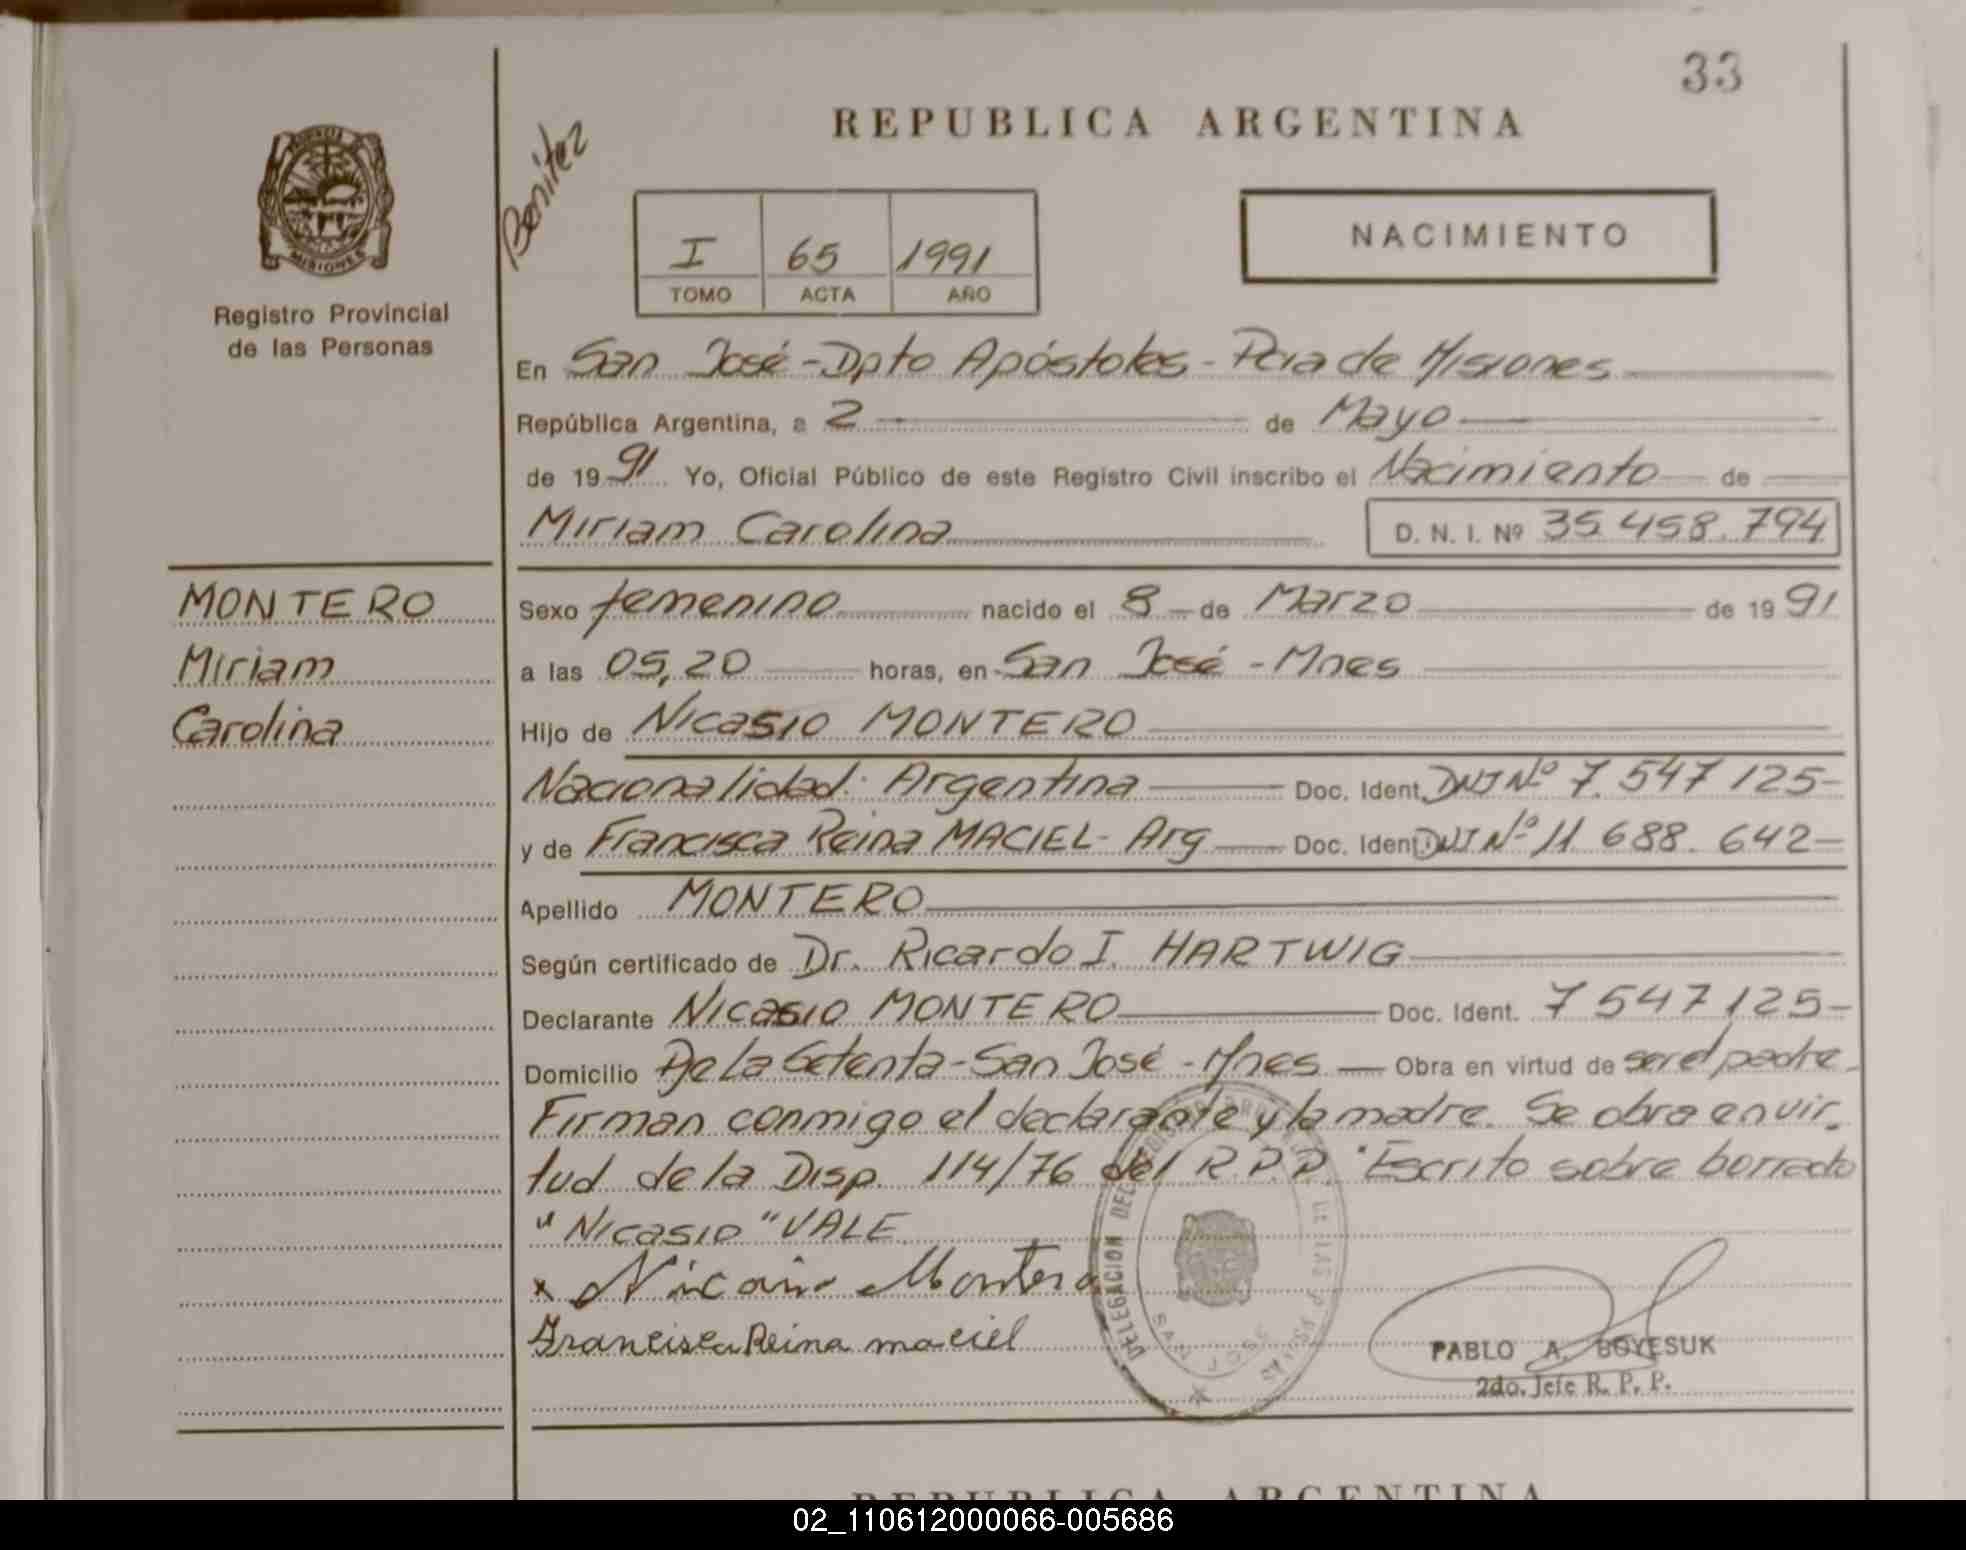 33
REPUBLICA ARGENTINA
Benitez
MISIONES
Registro Provincial
de las Personas
I 65 1991
TOMO ACTA AÑO
NACIMIENTO
En San José - Dpto Apóstoles - Pcia de Misiones
República Argentina, a 2 de Mayo
de 1991 Yo, Oficial Público de este Registro Civil inscribo el Nacimiento de
Miriam Carolina D. N. I. Nº 35.458.794
MONTERO
Miriam
Carolina
Sexo femenino nacido el 8 de Marzo de 1991
a las 05,20 horas, en San José - Mnes
Hijo de Nicasio MONTERO
Nacionalidad: Argentina Doc. Ident. DNI Nº 7.547 125-
y de Francisca Reina MACIEL - Arg Doc. Ident. DNI Nº 11.688.642-
Apellido MONTERO
Según certificado de Dr. Ricardo I. HARTWIG
Declarante Nicasio MONTERO Doc. Ident. 7 547 125-
Domicilio De La Setenta - San José - Mnes - Obra en virtud de ser el padre.
Firman conmigo el declarante y la madre. Se obra en vir-
tud de la Disp. 114/76 del R.P.P. "Escrito sobre borrado
"Nicasio" VALE
x Nicasio Montero
Francisca Reina maciel
DELEGACION DEL
SAN JOSE
PABLO A. BOYESUK
2do. Jefe R. P. P.
REPUBLICA ARGENTINA
02_110612000066-005686